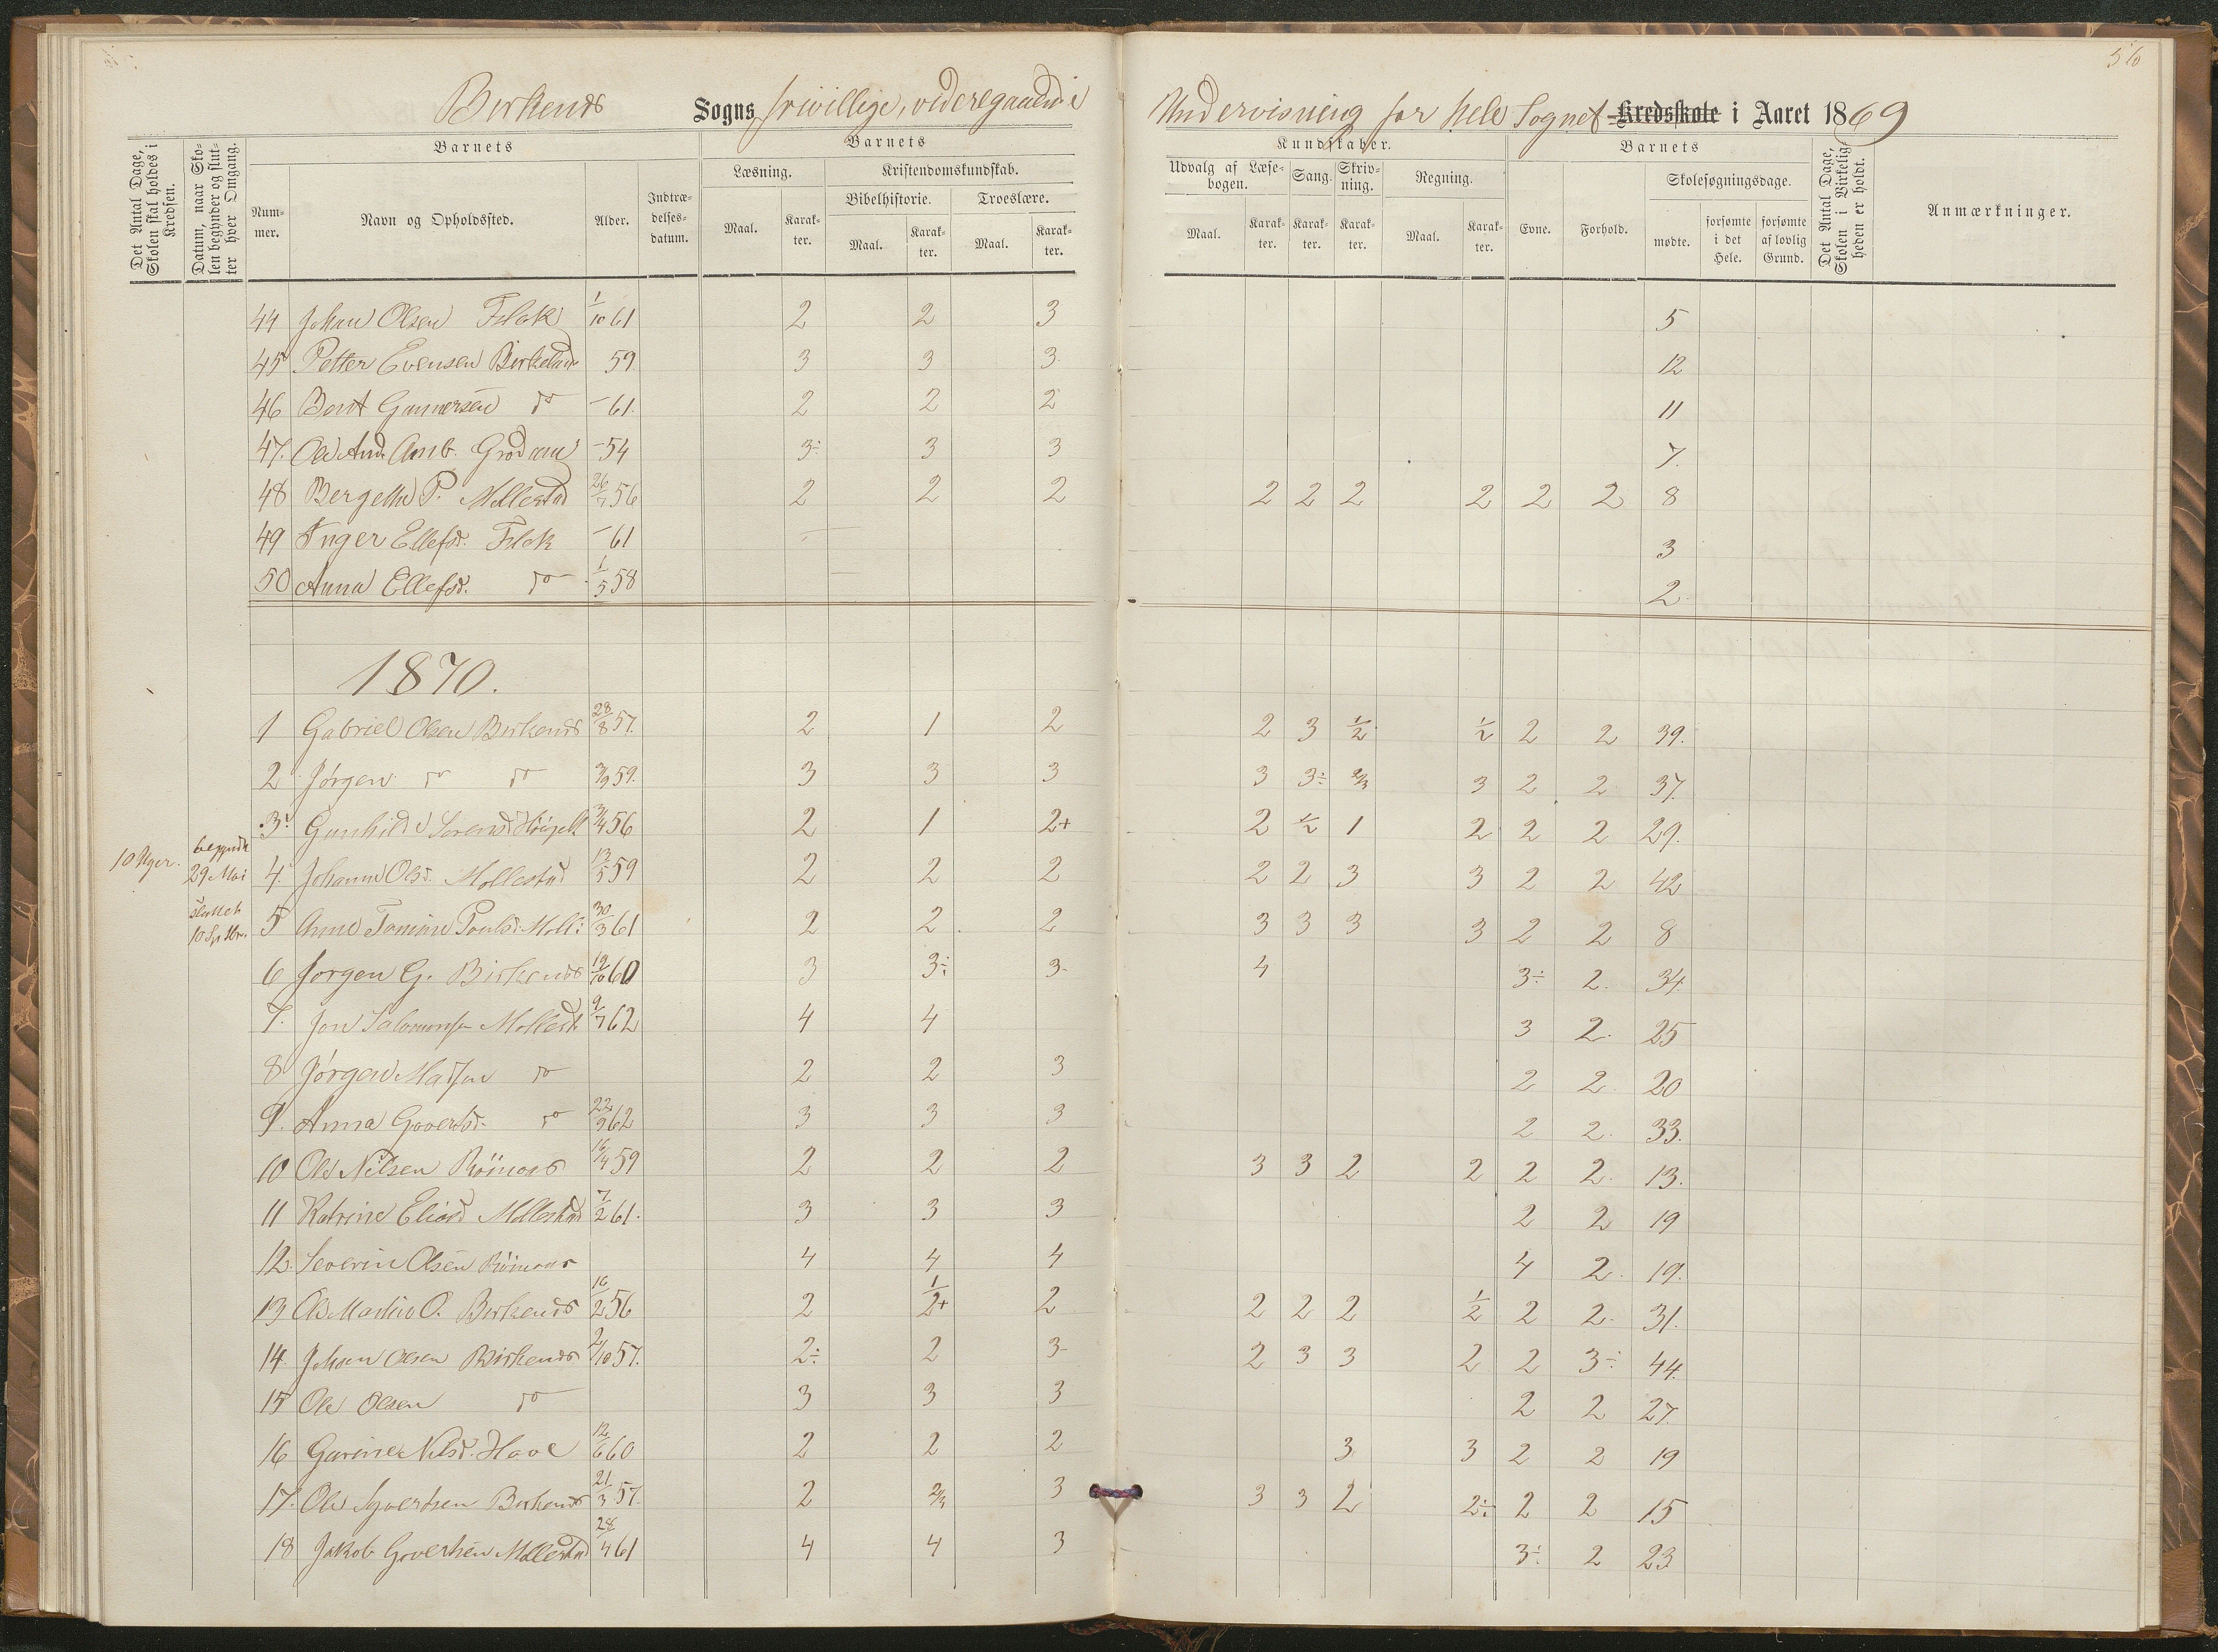 56
Birkenes Sogns frivillige, videregaaende Undervisning for hele Sognet Kredsskole i Aaret 1869
Det Antal Dage, Skolen skal holdes i Kredsen.
Datum, naar Skolen begynder og slutter hver Omgang.
Barnets
Barnets
Kundskaber.
Barnets
Det Antal Dage, Skolen i Virkeligheden er holdt.
Anmærkninger.
Nummer.
Navn og Opholdssted.
Alder.
Indtrædelsesdatum.
Læsning.
Kristendomskundskab.
Udvalg af Læsebogen.
Sang.
Skrivning.
Regning.
Evne.
Forhold.
Skolesøgningsdage.
Bibelhistorie.
Troeslære.
Maal.
Karakter.
Maal.
Karakter.
Maal.
Karakter.
Maal.
Karakter.
Karakter.
Karakter.
Maal.
Karakter.
mødte.
forsømte i det Hele.
forsømte af lovlig Grund.
44 Johan Olsen Flak 1/10 61 2 2 3 5
45 Petter Evensen Birkeland 59 3 3 3 12
46 Berit Gunnersen do - 61. 2 2 2 11
47. Ole And. Amb. - 54 3÷ 3 3 7.
48 Bergethe P. Mollestad 26/7 56 2 2 2 2 2 2 2 2 2 8
49 Inger Ellefsd. Flak - 61 3
50 Anna Ellefsd. do 1/5 58 2
1870.
1 Gabriel Olsen Birkenes 28/8 57. 2 1 2 2 3 1/2 1/2 2 2 39.
2 Jörgen do do 3/9 59. 3 3 3 3 3÷ 2/3 3 2 2 37.
3 Gunhild Sorensd 3/4 56 2 1 2+ 2 1/2 1 2 2 2 29.
10 Uger. begyndt 29 Mai 4. Johanne Olsd. Mollestad 13/5 59 2 2 2 2 2 3 3 2 2 42
sluttet 10 Sptbr. 5 Anne Tomine Poulsd. Moll: 30/3 61 2 2 2 3 3 3 3 2 2 8
6 Jorgen G. Birkenes 19/10 60 3 3÷ 3- 4 3÷ 2. 34.
7. Jon Salomonsen Mollest. 9/7 62 4 4 3 2. 25
8 Jörgen Madsen do 2 2 3 2 2 20
9. Anna Govertsd. do 22/9 62 3 3 3 2 2. 33.
10 Ole Nilsen Röinaas 16/4 59 2 2 2 3 3 2 2 2 2. 13.
11 Katrine Eliasd Mollestad 7/2 61. 3 3 3 2 2 19
12. Severin Olsen Röinaas 4 4 4 4 2. 19.
13 Ole Martin O. Birkenes 16/2 56 2 1/2+ 2 2 2 2 1/2 2 2. 31.
14. Johan Olsen Birkenes 2/10 57. 2÷ 2 3- 2 3 3 2 2 3÷ 44.
15 Ole Olsen do 3 3 3 2 2 27.
16 Gurine Nilsd. Hove 12/6 60 2 2 2 3 3 2 2 19
17. Ole Syvertsen Birkenes 21/3 57. 2 2/3 3 3 3 2 2÷ 2 2 15
18 Jakob Govertsen Mollestad 28/4 61 4 4 3 3÷ 2 23